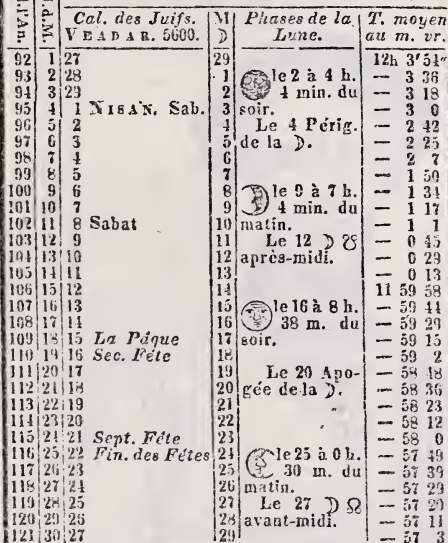 J.d.l'An. J.d.M. Cal. des Juifs. M Phases de la T. moyen
VEADAR. 5600. ☽ Lune. au m. vr.
92 1 27 29 12h 3'54"
93 2 28 1 le 2 à 4 h. — 3 36
94 3 29 2 4 min. du — 3 18
95 4 1 NISAN. Sab. 3 soir. — 3 0
96 5 2 4 Le 4 Périg. — 2 42
97 6 3 5 de la ☽. — 2 25
98 7 4 6 — 2 7
99 8 5 7 — 1 50
100 9 6 8 le 9 à 7 h. — 1 34
101 10 7 9 4 min. du — 1 17
102 11 8 Sabat 10 matin. — 1 1
103 12 9 11 Le 12 ☽ ☋ — 0 45
104 13 10 12 après-midi. — 0 29
105 14 11 13 — 0 13
106 15 12 14 11 59 58
107 16 13 15 le 16 à 8 h. — 59 44
108 17 14 16 38 m. du — 59 29
109 18 15 La Pâque 17 soir. — 59 15
110 19 16 Sec. Fête 18 — 59 2
111 20 17 19 Le 20 Apo- — 58 48
112 21 18 20 gée de la ☽. — 58 36
113 22 19 21 — 58 23
114 23 20 22 — 58 12
115 24 21 Sept. Fête 23 — 58 0
116 25 22 Fin. des Fêtes 24 le 25 à 0 h. — 57 49
117 26 23 25 30 m. du — 57 39
118 27 24 26 matin. — 57 29
119 28 25 27 Le 27 ☽ ☊ — 57 20
120 29 26 28 avant-midi. — 57 11
121 30 27 29 — 57 3